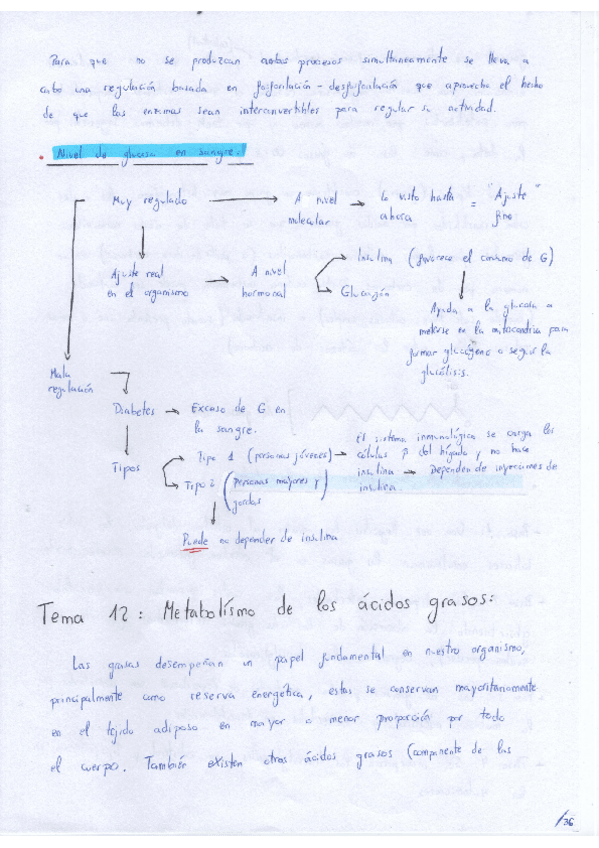 Para que no se produzcan ambos procesos simultáneamente se lleva a
cabo una regulación basada en fosforilación - desfosforilación que aprovecha el hecho
de que las enzimas sean interconvertibles para regular su actividad.
• Nivel de glucosa en sangre:
Muy regulado → A nivel molecular → lo visto hasta ahora = "Ajuste fino"
Ajuste real en el organismo → A nivel hormonal
Insulina (favorece el consumo de G)
Glucagón
Ayuda a la glucosa a
meterse en la mitocondria para
formar glucógeno o seguir la
glucólisis.
Mala
regulación
Diabetes → Exceso de G en
la sangre.
Tipos
Tipo 1 (personas jóvenes) →
El sistema inmunológico se carga las
células β del hígado y no hace
insulina → Dependen de inyecciones de
insulina.
Tipo 2 (personas mayores y
gordas)
Puede no depender de insulina
Tema 12: Metabolísmo de los ácidos grasos:
Las grasas desempeñan un papel fundamental en nuestro organismo,
principalmente como reserva energética, estas se conservan mayoritariamente
en el tejido adiposo en mayor o menor proporción por todo
el cuerpo. También existen otros ácidos grasos (componente de las
/36